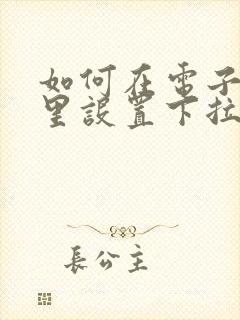 如何在電子
里設置下拉
長公主